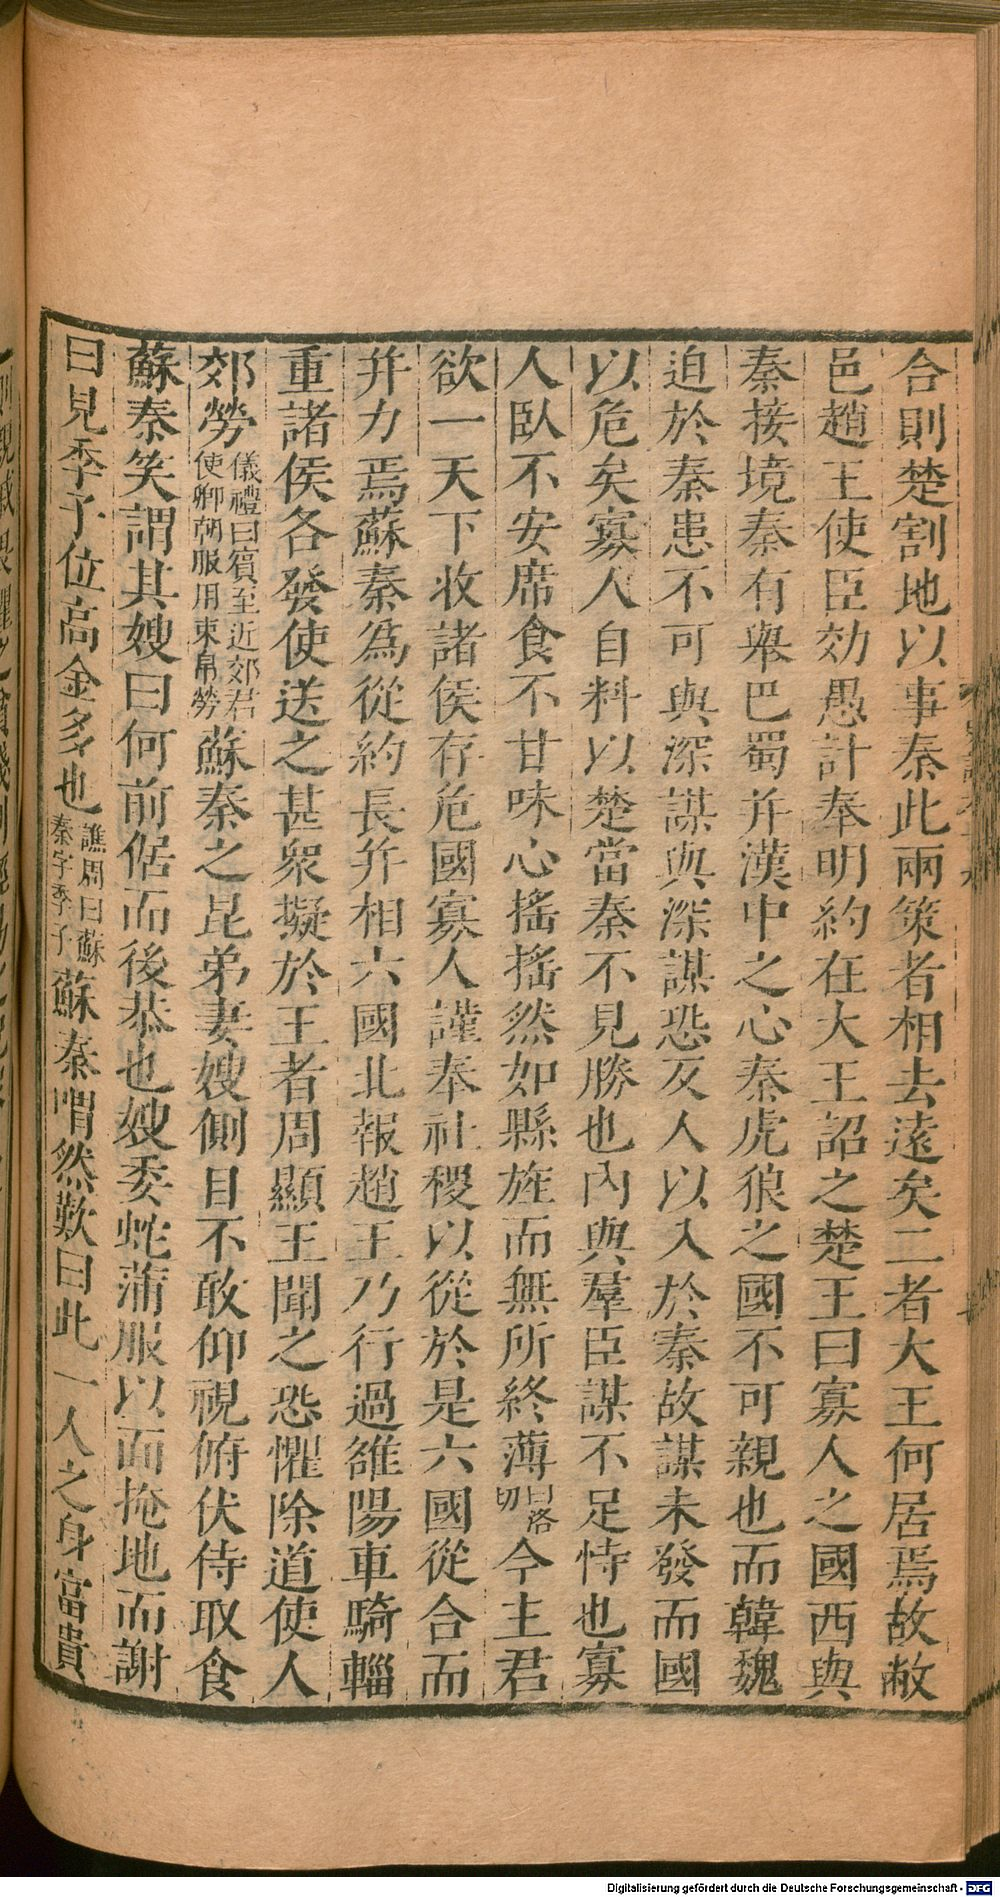 合則楚割地以事秦此兩策者相去遠矣二者大王何居焉故敝
邑趙王使臣効愚計奉明約在大王詔之楚王曰寡人之國西與
秦接境秦有舉巴蜀幷漢中之心秦虎狼之國不可親也而韓魏
迫於秦患不可與深謀與深謀恐反人以入於秦故謀未發而國
以危矣寡人自料以楚當秦不見勝也內與羣臣謀不足恃也寡
人臥不安席食不甘味心搖搖然如縣旌而無所終薄白洛切今主君
欲一天下收諸侯存危國寡人謹奉社稷以從於是六國從合而
幷力焉蘇秦爲從約長幷相六國北報趙王乃行過雒陽車騎輜
重諸侯各發使送之甚衆擬於王者周顯王聞之恐懼除道使人
郊勞儀禮曰賓至近郊君使卿朝服用束帛勞蘇秦之昆弟妻嫂側目不敢仰視俯伏侍取食
蘇秦笑謂其嫂曰何前倨而後恭也嫂委蛇蒲服以面掩地而謝
曰見季子位高金多也譙周曰蘇秦字季子蘇秦喟然歎曰此一人之身富貴
Digitalisierung gefördert durch die Deutsche Forschungsgemeinschaft - DFG